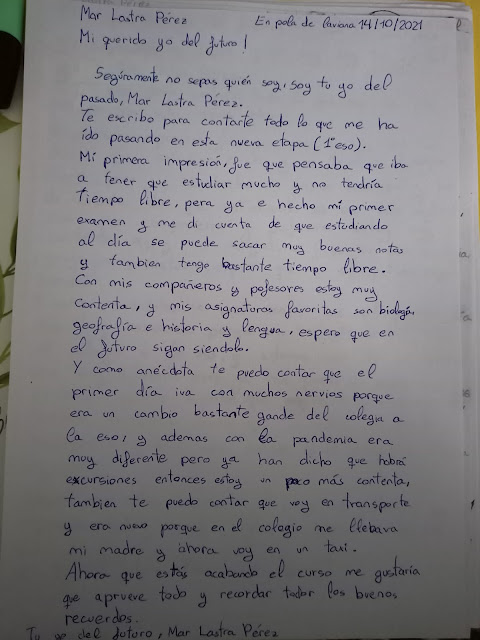 Mar Lastra Pérez
En pola de laviana 14/10/2021
Mi querido yo del futuro!
Segúramente no sepas quién soy, soy tu yo del
pasado, Mar Lastra Pérez.
Te escribo para contarte todo lo que me ha
ido pasando en esta nueva etapa (1ºeso).
Mi primera impresión, fue que pensaba que iba
a tener que estudiar mucho y no tendría
tiempo libre, pera ya e hecho mi primer
examen y me di cuenta de que estudiando
al día se puede sacar muy buenas notas
y tambien tengo bastante tiempo libre.
Con mis compañeros y pofesores estoy muy
contenta, y mis asignaturas favoritas son biología,
geofrafía e historia y lengua, espero que en
el futuro sigan siendolo.
Y como anécdota te puedo contar que el
primer día iva con muchos nervios porque
era un cambio bastante gande del colegio a
la eso, y ademas con la pandemia era
muy diferente pero ya han dicho que habrá
excursiones entonces estoy un poco más contenta,
tambien te puedo contar que voy en transporte
y era nuevo porque en el colegio me llebava
mi madre y ahora voy en un taxi.
Ahora que estás acabando el curso me gustaría
que aprueve todo y recordar todos los buenos
recuerdos.
Tu yo del futuro, Mar Lastra Pérez